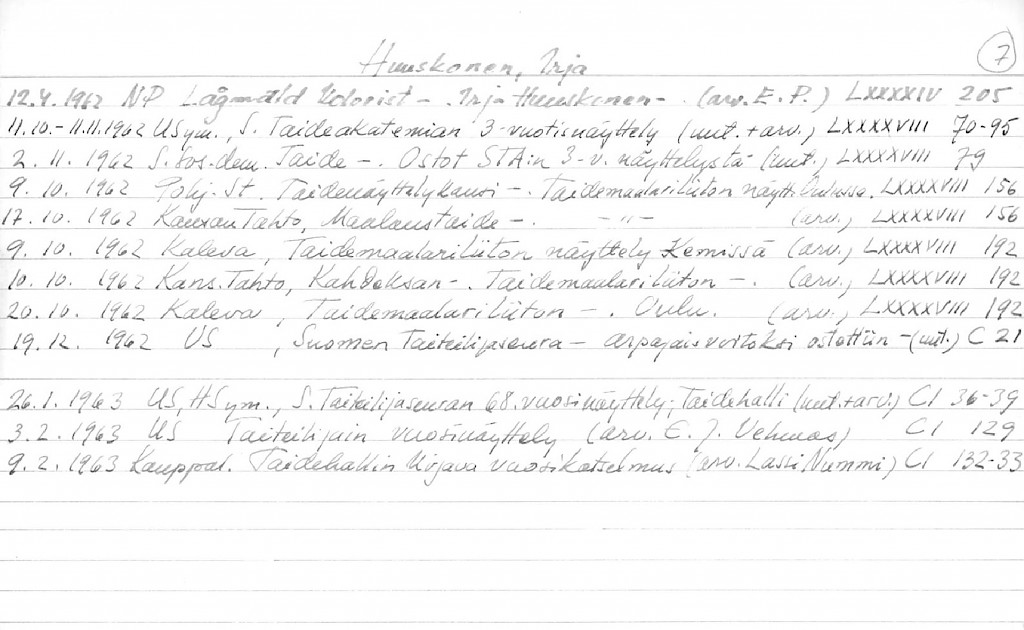 7
Huuskonen, Irja
12.4.1962 NP Lågmäld kolorist -. Irja Huuskonen - (arv. E. P.) LXXXXIV 205
11.10.-11.11.1962 US ym., S. Taideakatemian 3-vuotisnäyttely (uut. + arv.) LXXXXVIII 70-95
2. 11. 1962 S. sos.-dem. Taide -. Ostot STA:n 3-v. näyttelystä (uut.) LXXXXVIII 79
9. 10. 1962 Pohj. St. Taidenäyttelykausi -. Taidemaalariliiton näytt. Oulussa. LXXXXVIII 156
17. 10. 1962 Kansan Tahto, Maalaustaide -. -"- (arv.) LXXXXVIII 156
9. 10. 1962 Kaleva, Taidemaalariliiton näyttely Kemissä (arv.) LXXXXVIII 192
10. 10. 1962 Kans. Tahto, Kahdeksan -. Taidemaalariliiton -. (arv.) LXXXXVIII 192
20. 10. 1962 Kaleva, Taidemaalariliiton -. Oulu. (arv.) LXXXXVIII 192
19. 12. 1962 US, Suomen Taiteilijaseura - arpajaisvoitoksi ostettiin - (uut.) C 21
26. 1. 1963 US, HS ym., S. Taiteilijaseuran 68. vuosinäyttely, Taidehalli (uut. + arv.) CI 36-39
3. 2. 1963 US Taiteilijain vuosinäyttely (arv. E. J. Vehmas) CI 129
9. 2. 1963 Kauppal. Taidehallin kirjava vuosikatselmus (arv. Lassi Nummi) CI 132-33